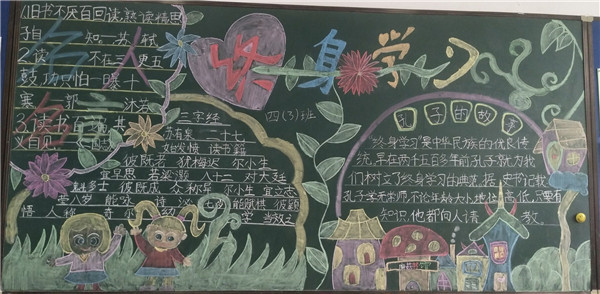 1旧书不厌百回读,熟读精思
子自 知。—苏轼
2.读 不在三更五
鼓,功只怕一曝十
寒 郭 沫若
3.读书百 其
义自见
名人
终身学习
四(3)班
三字经
苏老泉 二十七
始发愤 读书籍
彼既老 犹悔迟 尔小生
宜早思 若梁灏 八十二 对大廷
魁多士 彼既成 众称异 尔小生 宜立志
莹八岁 能咏诗 泌七岁 能赋棋 彼颖
悟 人称奇 尔幼学 当效之
孔子的故事
"终身学习"是中华民族的优良传
统,早在两千五百多年前孔子就为我
们树立了终身学习的典范,据 史书记载
孔子学无常师,不论年龄大小,地位高低,只要有
知识,他都向人请教。